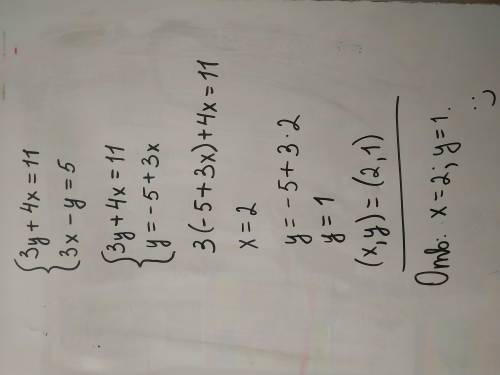 {3y + 4x = 11
{3x - y = 5
{3y + 4x = 11
{y = -5 + 3x
3(-5 + 3x) + 4x = 11
x = 2
y = -5 + 3 · 2
y = 1
(x, y) = (2, 1)
Отв: x = 2; y = 1.
:)